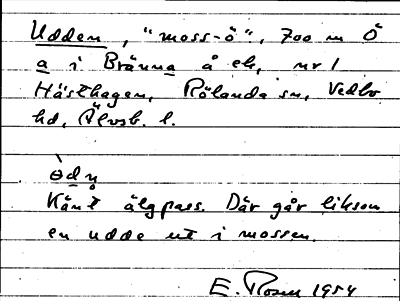 Udden, "moss-ö", 700 m Ö
a i Bränna å ek, nr 1
Hästhagen, Rölanda sn, Vedbo
hd, Älvsb. l.
ə̀dṇ
Känt älgpass. Där går liksom
en udde ut i mossen.
E. Rosen 1954